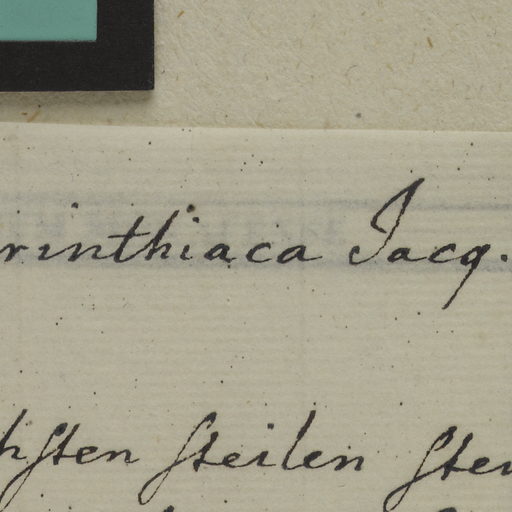 rinthiaca Jacq.
hsten steilen stei